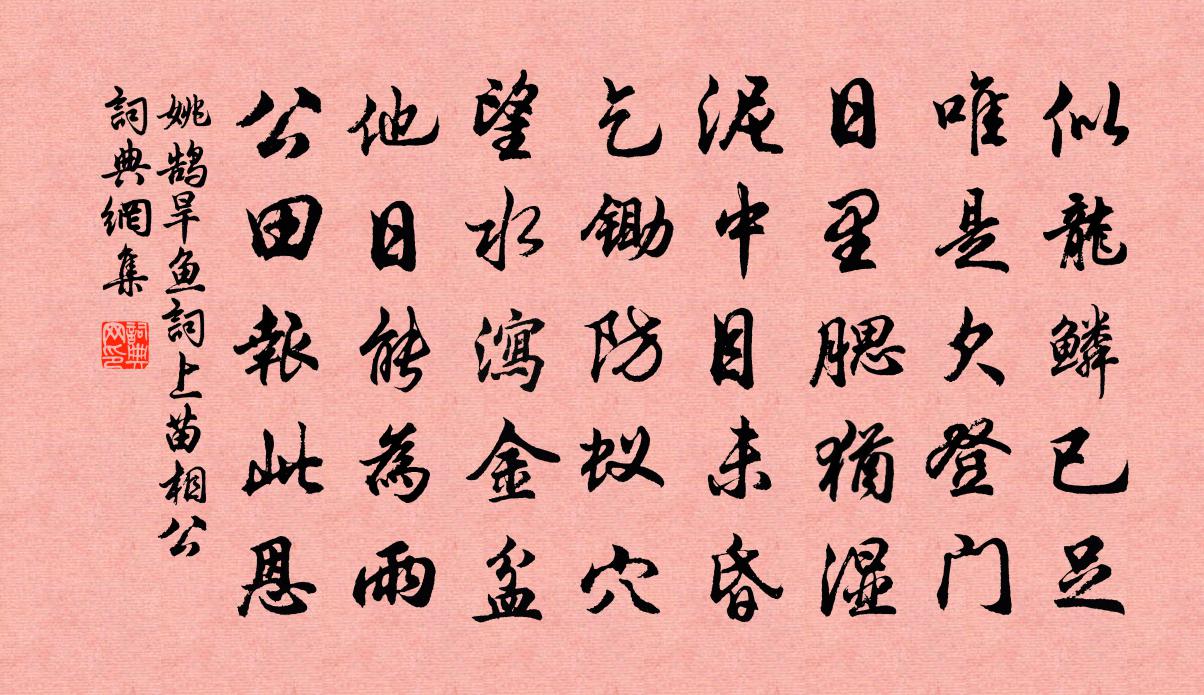 似龍鱗已足
唯是欠登门
日里腮猶湿
泥中目未昏
乞鋤防蚁穴
望水瀉金盆
他日能為雨
公田報此恩
姚鹄旱鱼詞上苗相公
詞典網集
詞典网印